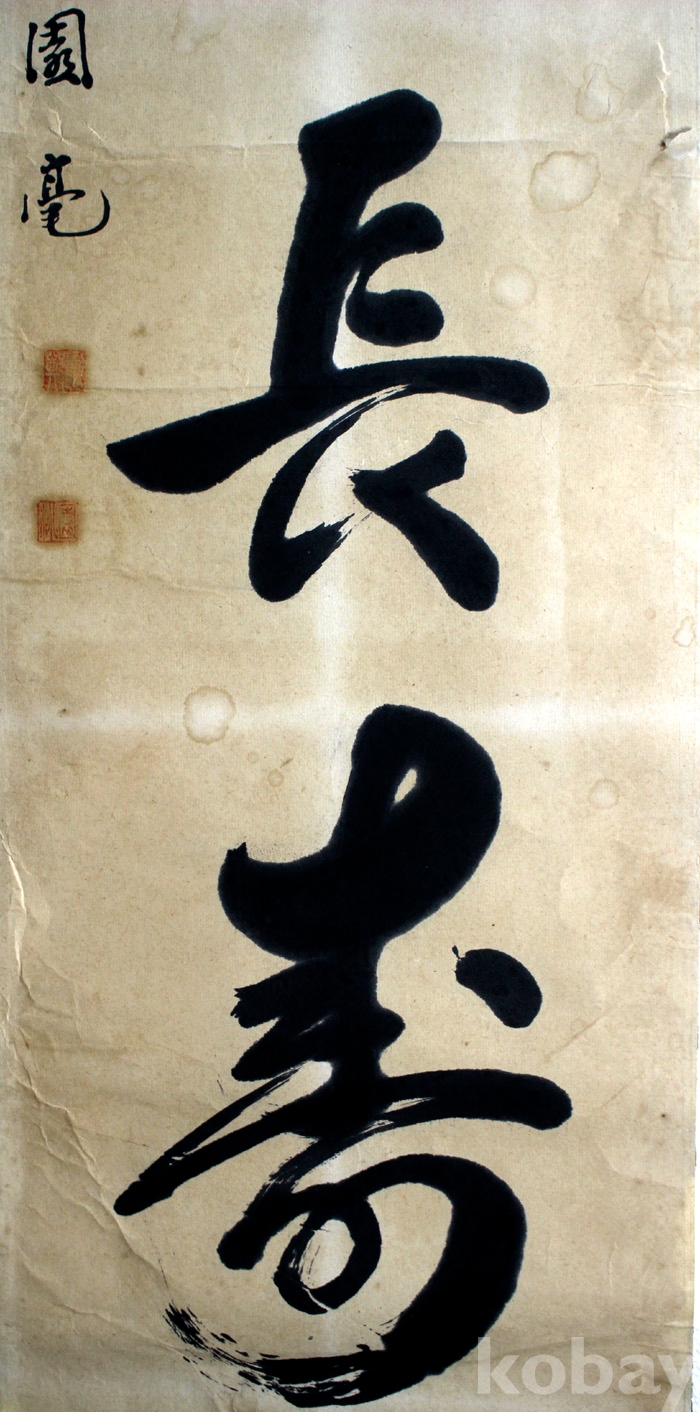 長壽
園毫
kobay